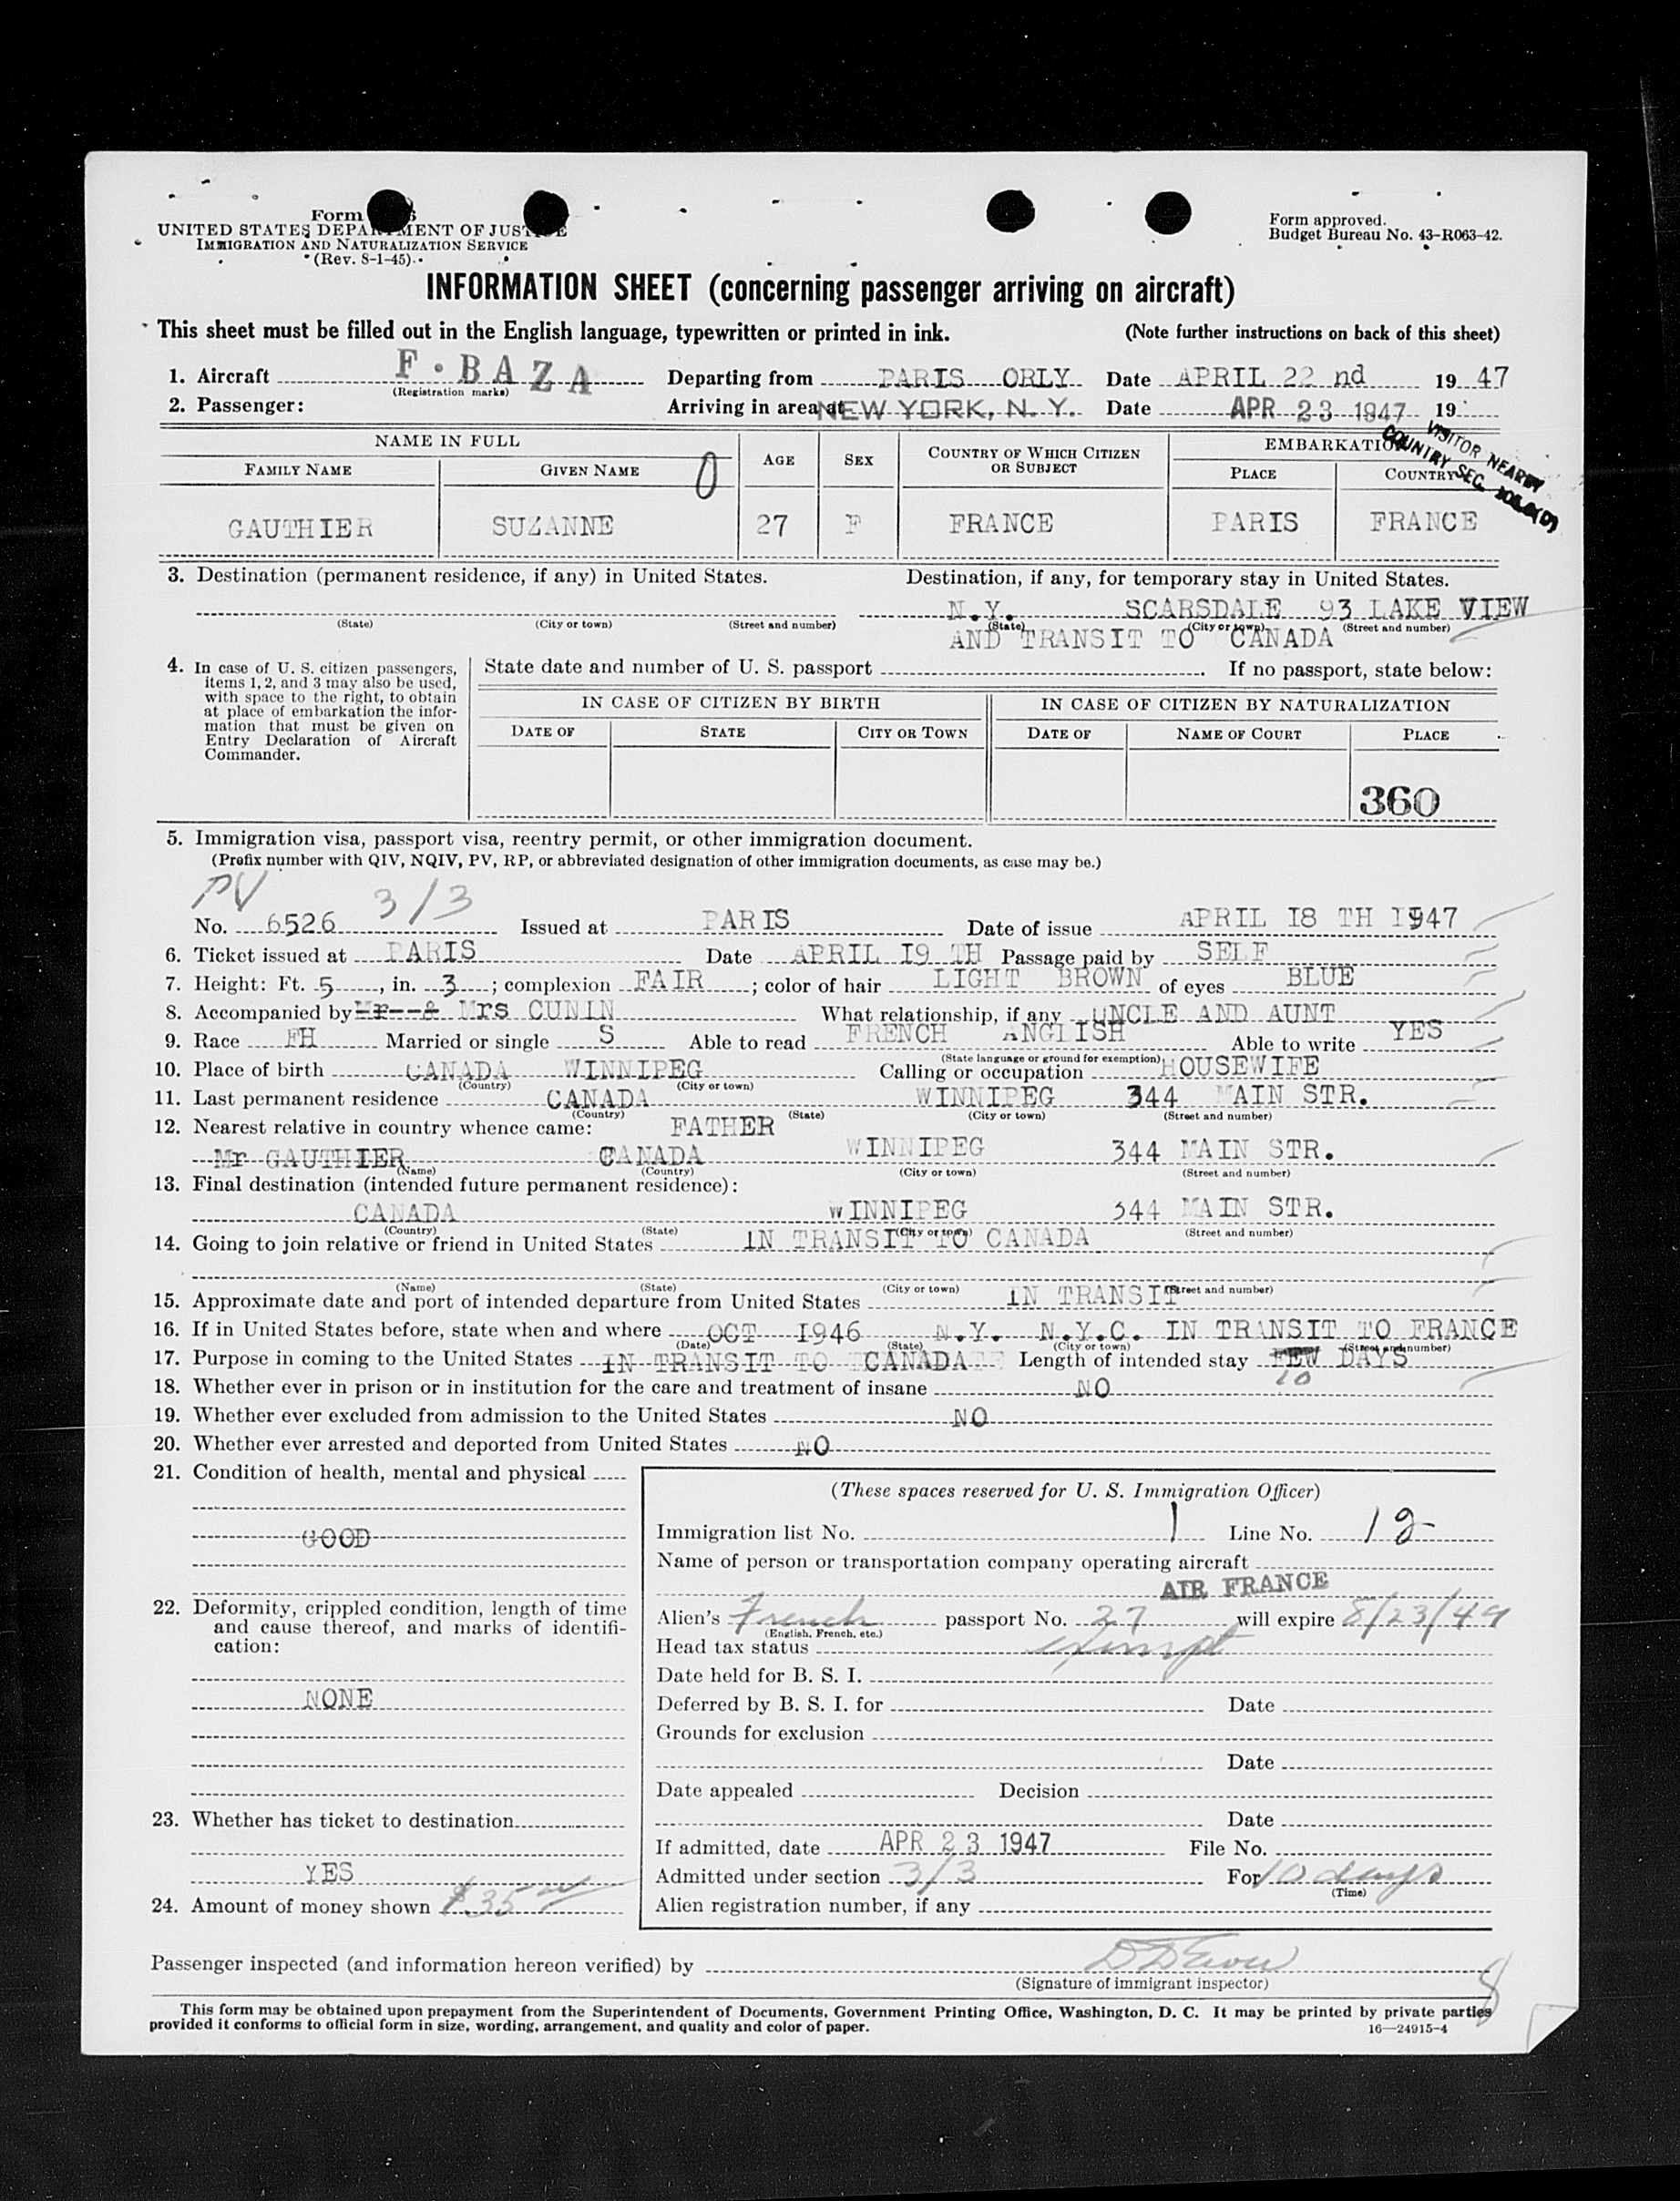 Form
UNITED STATES DEPARTMENT OF JUSTICE
IMMIGRATION AND NATURALIZATION SERVICE
(Rev. 8-1-45)
Form approved.
Budget Bureau No. 43-R063-42.
INFORMATION SHEET (concerning passenger arriving on aircraft)
This sheet must be filled out in the English language, typewritten or printed in ink. (Note further instructions on back of this sheet)
1. Aircraft F.BAZA Departing from PARIS ORLY Date APRIL 22 nd 1947
(Registration marks)
2. Passenger: Arriving in area at NEW YORK, N. Y. Date APR 23 1947 19
VISITOR NEARBY
COUNTRY SEC.
NAME IN FULL AGE SEX COUNTRY OF WHICH CITIZEN OR SUBJECT EMBARKATION
FAMILY NAME GIVEN NAME PLACE COUNTRY
GAUTHIER SUZANNE 27 F FRANCE PARIS FRANCE
3. Destination (permanent residence, if any) in United States. Destination, if any, for temporary stay in United States.
N.Y. SCARSDALE 93 LAKE VIEW
(State) (City or town) (Street and number) (State) (City or town) (Street and number)
AND TRANSIT TO CANADA
4. In case of U. S. citizen passengers, items 1, 2, and 3 may also be used, with space to the right, to obtain at place of embarkation the information that must be given on Entry Declaration of Aircraft Commander.
State date and number of U. S. passport . If no passport, state below:
IN CASE OF CITIZEN BY BIRTH IN CASE OF CITIZEN BY NATURALIZATION
DATE OF STATE CITY OR TOWN DATE OF NAME OF COURT PLACE
360
5. Immigration visa, passport visa, reentry permit, or other immigration document.
(Prefix number with QIV, NQIV, PV, RP, or abbreviated designation of other immigration documents, as case may be.)
PV 3/3
No. 6526 Issued at PARIS Date of issue APRIL I8 TH I947
6. Ticket issued at PARIS Date APRIL I9 TH Passage paid by SELF
7. Height: Ft. 5, in. 3; complexion FAIR; color of hair LIGHT BROWN of eyes BLUE
8. Accompanied by Mr & Mrs CUNIN What relationship, if any UNCLE AND AUNT
9. Race FH Married or single S Able to read FRENCH ANGLISH Able to write YES
(State language or ground for exemption)
10. Place of birth CANADA WINNIPEG Calling or occupation HOUSEWIFE
(Country) (City or town)
11. Last permanent residence CANADA WINNIPEG 344 MAIN STR.
(Country) (State) (City or town) (Street and number)
12. Nearest relative in country whence came: FATHER
Mr GAUTHIER CANADA WINNIPEG 344 MAIN STR.
(Name) (Country) (City or town) (Street and number)
13. Final destination (intended future permanent residence):
CANADA WINNIPEG 344 MAIN STR.
(Country) (State) (City or town) (Street and number)
14. Going to join relative or friend in United States IN TRANSIT TO CANADA
(Name) (State) (City or town) (Street and number)
15. Approximate date and port of intended departure from United States IN TRANSIT
16. If in United States before, state when and where OCT I946 N.Y. N.Y.C. IN TRANSIT TO FRANCE
(Date) (State) (City or town) (Street and number)
17. Purpose in coming to the United States IN TRANSIT TO CANADA Length of intended stay FEW DAYS
10
18. Whether ever in prison or in institution for the care and treatment of insane NO
19. Whether ever excluded from admission to the United States NO
20. Whether ever arrested and deported from United States NO
21. Condition of health, mental and physical
GOOD
22. Deformity, crippled condition, length of time and cause thereof, and marks of identification:
NONE
23. Whether has ticket to destination
YES
24. Amount of money shown $35
(These spaces reserved for U. S. Immigration Officer)
Immigration list No. 1 Line No. 12
Name of person or transportation company operating aircraft
AIR FRANCE
Alien's French passport No. 27 will expire 8/23/49
(English, French, etc.)
Head tax status exempt
Date held for B. S. I.
Deferred by B. S. I. for Date
Grounds for exclusion
Date
Date appealed Decision
Date
If admitted, date APR 23 1947 File No.
Admitted under section 3/3 For 10 days
(Time)
Alien registration number, if any
Passenger inspected (and information hereon verified) by
(Signature of immigrant inspector)
This form may be obtained upon prepayment from the Superintendent of Documents, Government Printing Office, Washington, D. C. It may be printed by private parties
provided it conforms to official form in size, wording, arrangement, and quality and color of paper. 16—24915-4